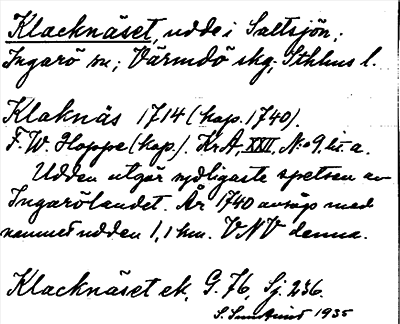 Klacknäset, udde i Saltsjön;
Ingarö sn; Värmdö skg; Sthlms l.
Klaknäs 1714 (kop. 1740).
F. W. Hoppe (kop.). KrA, XXII, N:o 9. lit. a.
Udden utgör sydligaste spetsen av
Ingarölandet. År 1740 avsågs med
namnet udden 1,1 km. VNV denna.
Klacknäset ek, G. 76, Sj. 236.
S. 1935